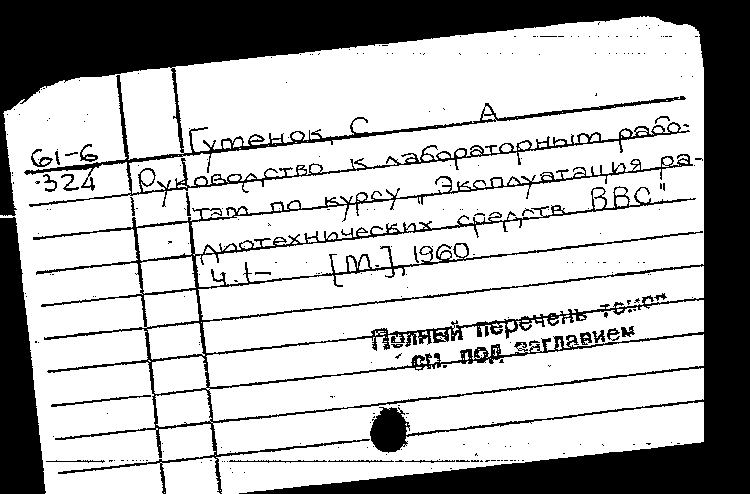 61-6
324
Гутенок, С А
Руководство к лабораторным рабо-
там по курсу „Эксплуатация ра-
диотехнических средств ВВС".
ч. 1- [М.], 1960
Полный перечень томов
см. под заглавием